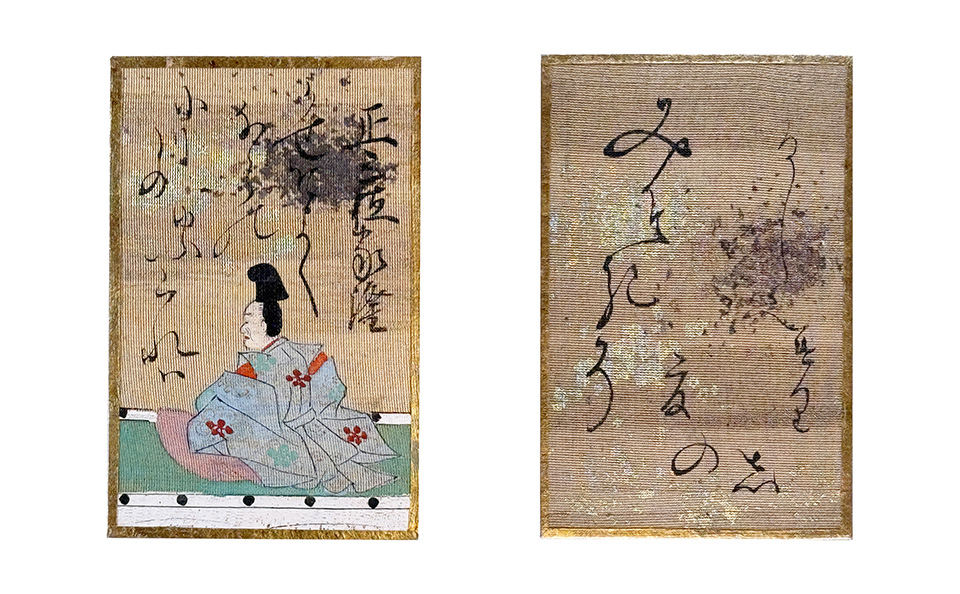 正三位家隆
かせそよく
ならの
小川の
ゆふくれハ
みそきそ
夏
の
志
るしなりける